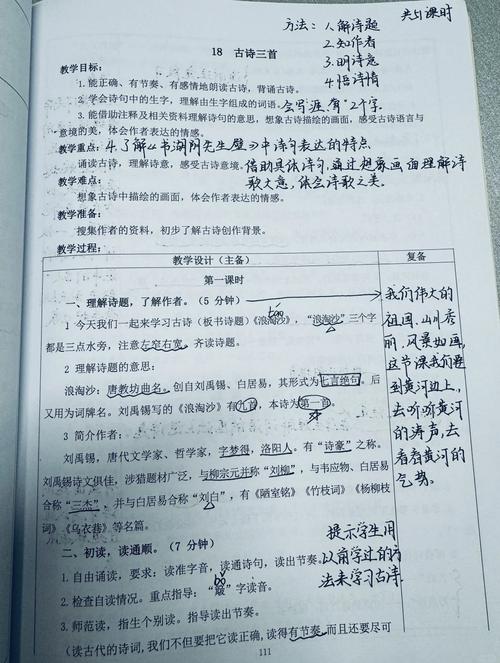 共5课时
方法: 1.解诗题
2.知作者
3.明诗意
4.悟诗情
18 古诗三首
教学目标:
1.能正确、有节奏、有感情地朗读古诗,背诵古诗。
2.学会诗句中的生字,理解由生字组成的词语。会写涯、
3.能借助注释及相关资料理解诗句的意思,想象古诗描绘的画面,感受古诗语言与
意境的美,体会作者表达的情感。
4.了解《书湖阴先生壁》中诗句表达的特点
教学重点:
诵读古诗,理解诗意,感受古诗意境。借助具体诗句,通过想象画面理解诗
歌大意,体会诗歌之美。
教学难点:
想象古诗中描绘的画面,体会作者表达的情感。
教学准备:
搜集作者的资料,初步了解古诗创作背景。
教学过程:
教学设计(主备) 复备
第一课时
一、理解诗题,了解作者。(5 分钟)
1 今天我们一起来学习古诗(板书诗题)《浪淘沙》,“浪淘沙”三个字
都是三点水旁,注意左窄右宽,齐读诗题。
2 理解诗题的意思:
浪淘沙:唐教坊曲名。创自刘禹锡、白居易,其形式为七言绝句。后
又用为词牌名。刘禹锡写的《浪淘沙》有九首,本诗为第一首。
3 简介作者:
刘禹锡,唐代文学家、哲学家,字梦得,洛阳人。有“诗豪”之称。
刘禹锡诗文俱佳,涉猎题材广泛,与柳宗元并称“刘柳”,与韦应物、白居易
合称“三杰”,并与白居易合称“刘白”,有《陋室铭》《竹枝词》《杨柳枝
词》《乌衣巷》等名篇。
二、初读,读通顺。(7 分钟)
1.自由诵读,要求:读准字音,读通诗句,读出节奏。
2.检查自读情况。重点指导:“簸”字读音。
bǒ
3.师范读,指生个别读。指导读出节奏。
(读古代的诗词,我们不但要把它读正确,读得有节奏,而且还要尽可
我们伟大的
祖国,山川秀
丽,风景如画,
这节课我们要
到黄河边上,
去听听黄河
的涛声,去
看看黄河的
气势。
提示学生用
以前学过的方
法来学习古诗
111